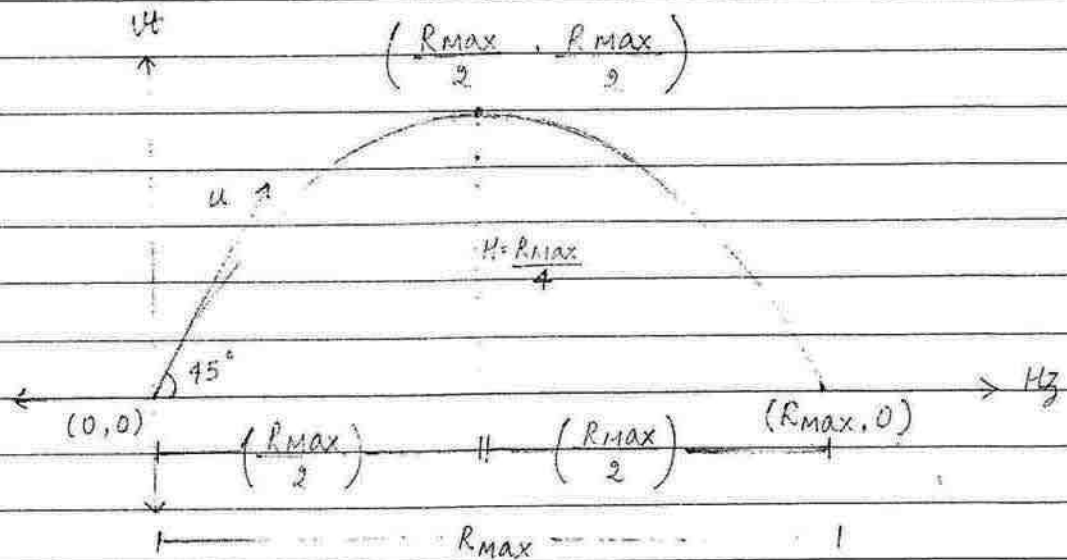 Vt
( RMax/2 , RMax/2 )
u
H = RMax/4
45°
Hz
(0,0)
(RMax, 0)
( RMax/2 ) ( RMax/2 )
RMax